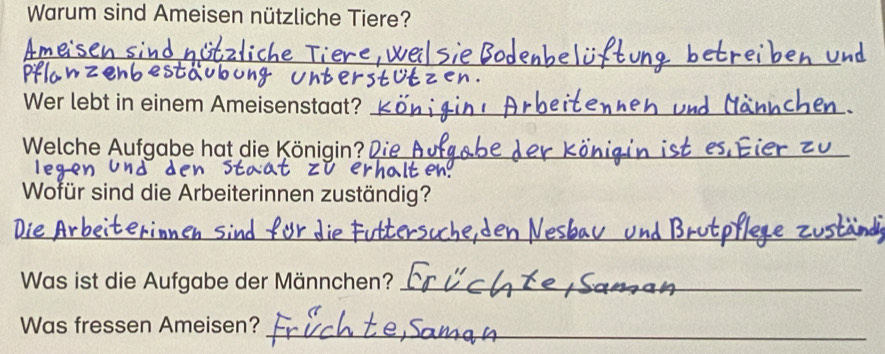 Warum sind Ameisen nützliche Tiere?
Ameisen sind nützliche Tiere, weil sie Bodenbelüftung betreiben und
Pflanzenbestäubung unterstützen.
Wer lebt in einem Ameisenstaat? Königin, Arbeitennen und Männchen.
Welche Aufgabe hat die Königin? Die Aufgabe der Königin ist es, Eier zu
legen und den Staat zu erhalten.
Wofür sind die Arbeiterinnen zuständig?
Die Arbeiterinnen sind für die Futtersuche, den Nesbau und Brutpflege zuständig
Was ist die Aufgabe der Männchen? Früchte, Saman
Was fressen Ameisen? Früchte, Saman